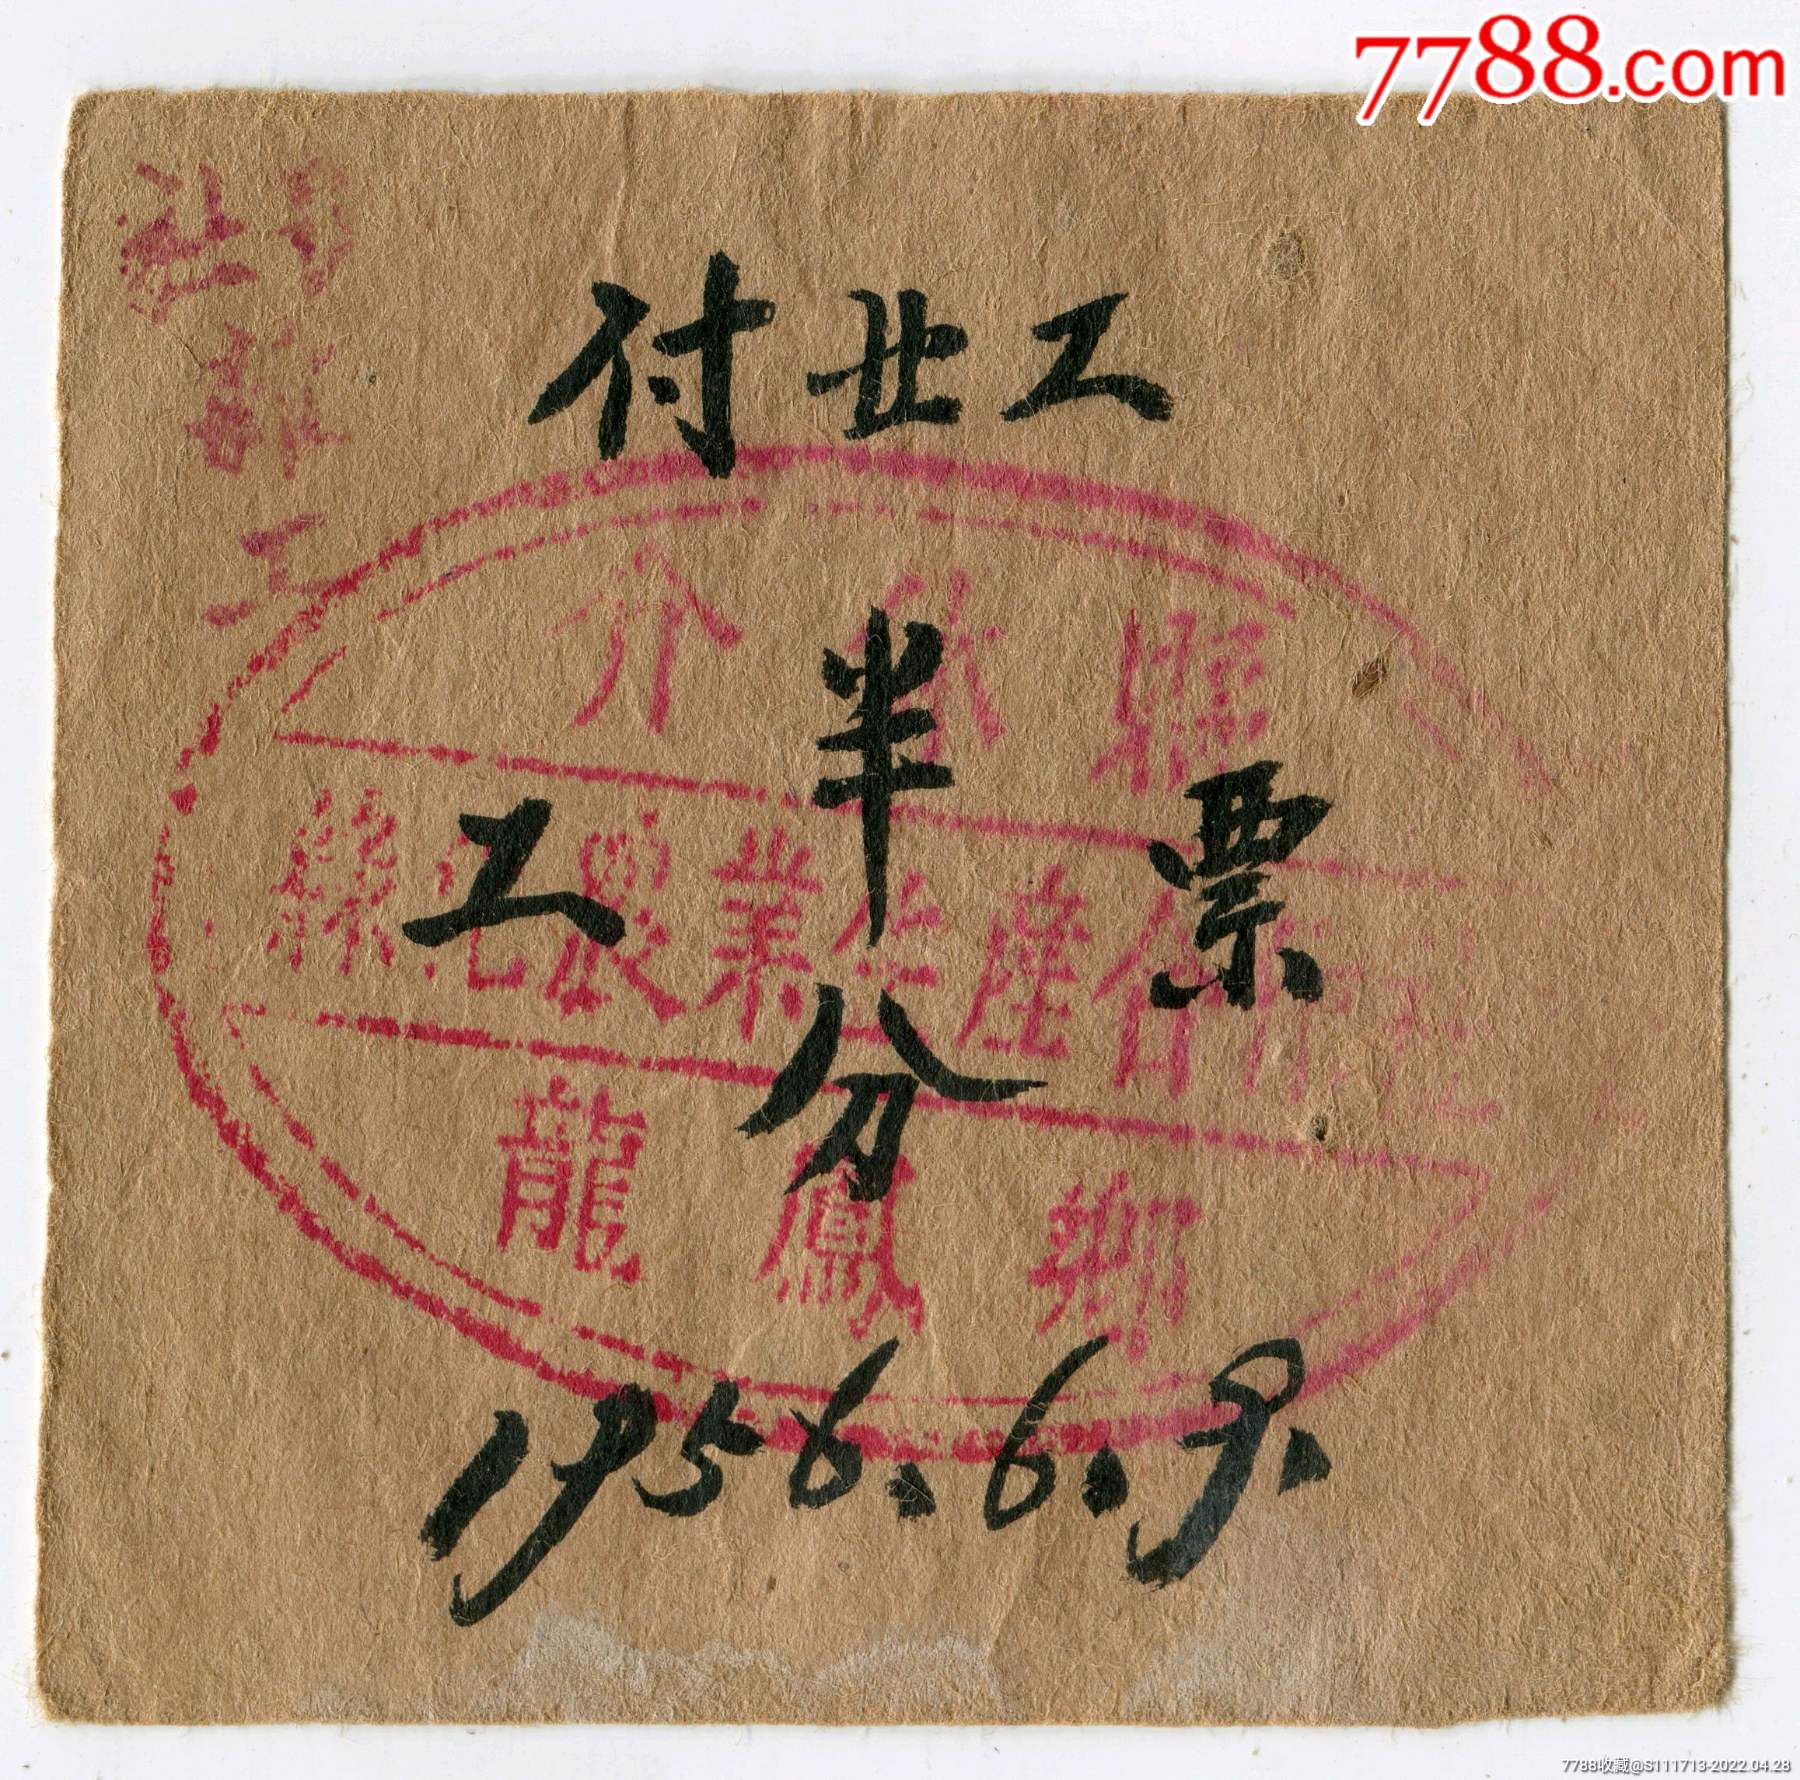 7788.com
社
工
付业工
介休縣
工半分票
絲 農業生產合作社
龍鳳鄉
1956.6.9.
7788收藏@S111713-2022.04.28